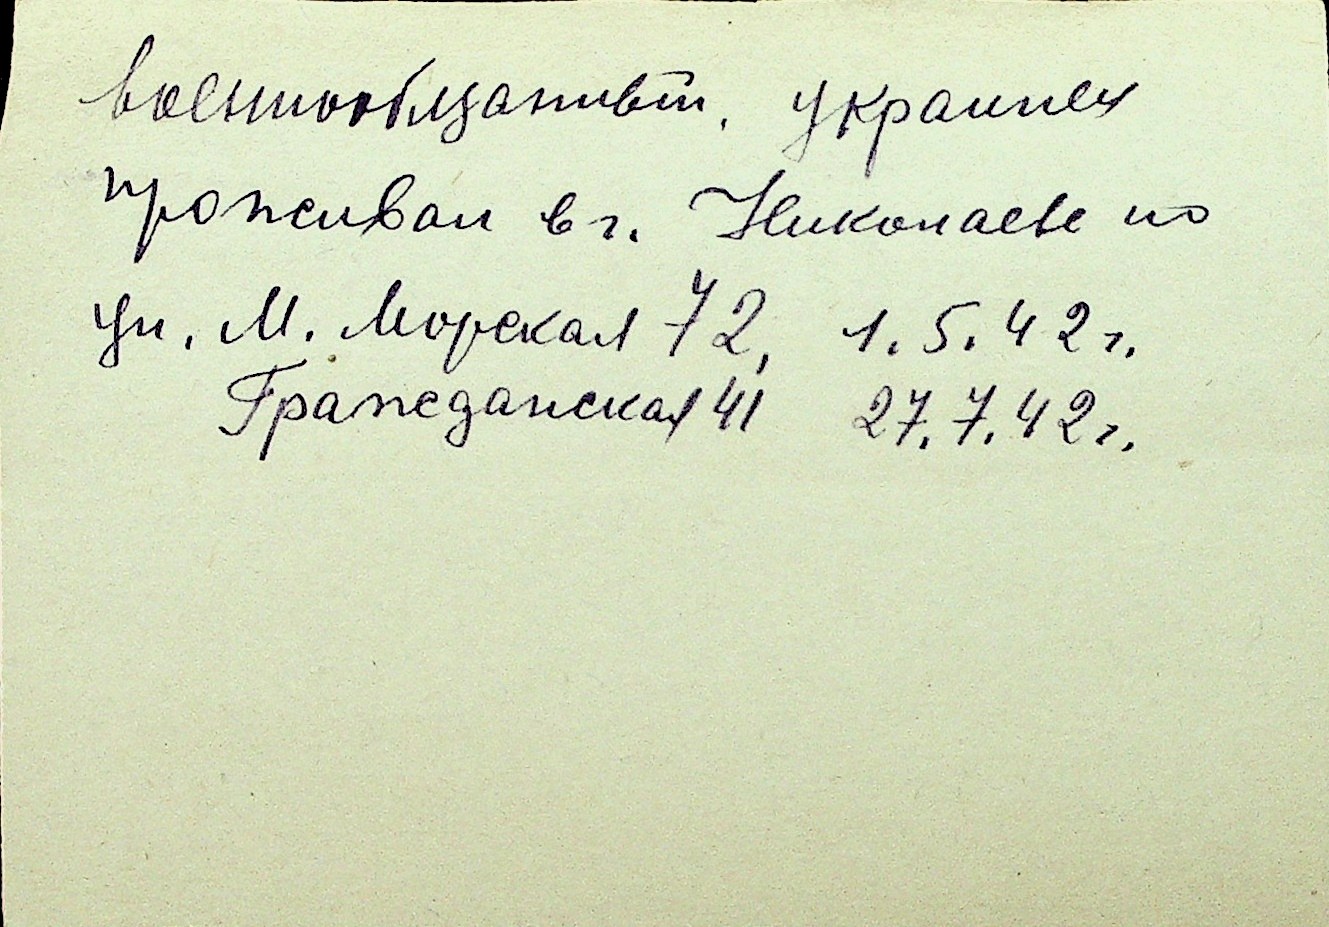 военнообязанный, украинец
проживал в г. Николаеве по
ул. М. Морская 72, 1.5.42 г.
Гражданская 41 27.7.42 г.